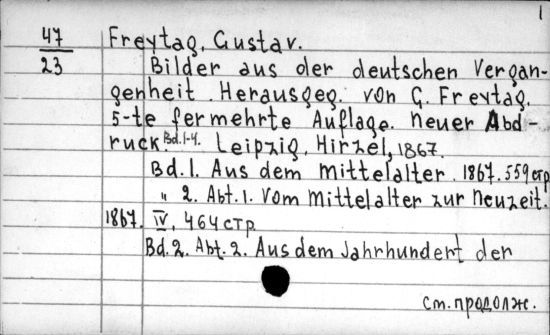 1
47 Freytag, Gustav.
23 Bilder aus der deutschen Vergan-
genheit. Herausgeg. von G. Freytag.
5-te fermehrte Auflage. Neuer Abd-
ruck Bd. 1-4. Leipzig, Hirzel, 1867.
Bd. 1. Aus dem Mittelalter. 1867. 559 стр
„ 2. Abt. 1. Vom Mittelalter zur Neuzeit.
1867. IV, 464 стр
Bd. 2. Abt. 2. Aus dem Jahrhundert der
см. продолж.